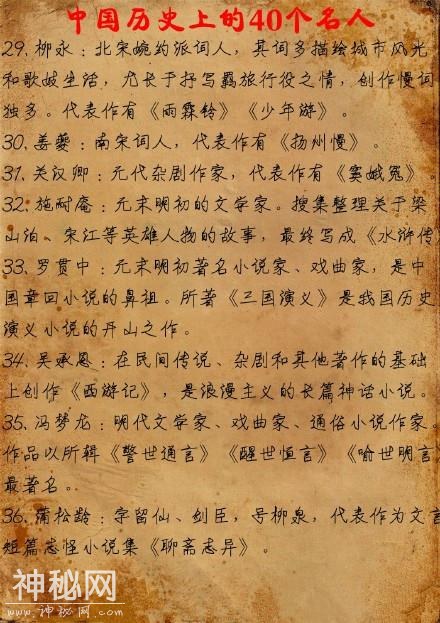 中国历史上的40个名人
29. 柳永：北宋婉约派词人，其词多描绘城市风光
和歌妓生活，尤长于抒写羁旅行役之情，创作慢词
独多。代表作有《雨霖铃》《少年游》。
30. 姜夔：南宋词人，代表作有《扬州慢》。
31. 关汉卿：元代杂剧作家，代表作有《窦娥冤》
32. 施耐庵：元末明初的文学家。搜集整理关于梁
山泊、宋江等英雄人物的故事，最终写成《水浒传
33. 罗贯中：元末明初著名小说家、戏曲家，是中
国章回小说的鼻祖。所著《三国演义》是我国历史
演义小说的开山之作。
34. 吴承恩：在民间传说、杂剧和其他著作的基础
上创作《西游记》，是浪漫主义的长篇神话小说。
35. 冯梦龙：明代文学家、戏曲家、通俗小说作家。
作品以所辑《警世通言》《醒世恒言》《喻世明言
最著名。
36. 蒲松龄：字留仙、剑臣，号柳泉，代表作为文言
短篇志怪小说集《聊斋志异》。
神秘网
www.神秘网.com